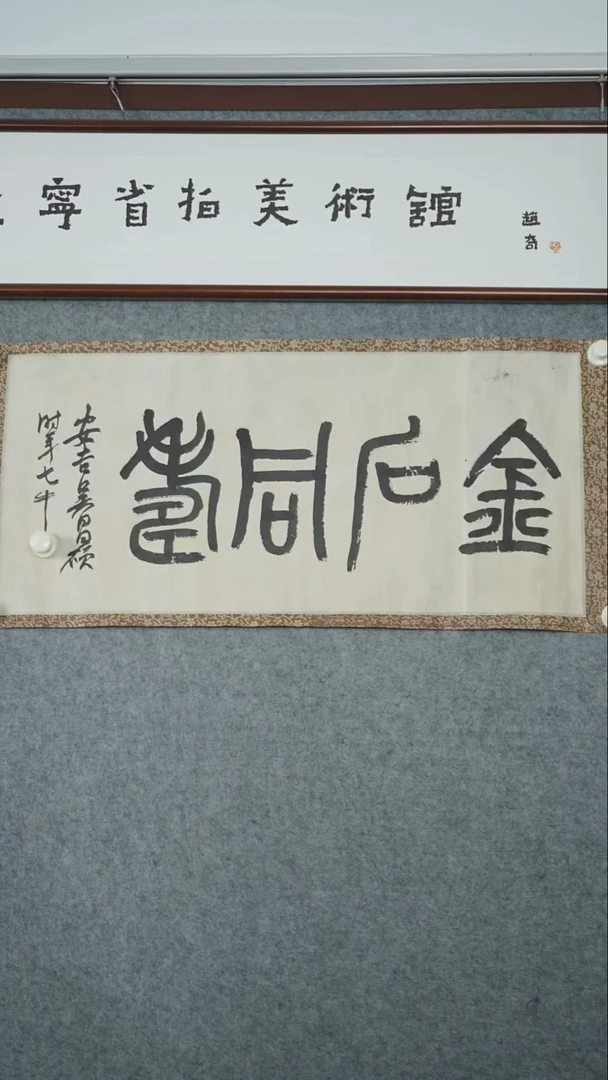 寧省拍美術館
趙奇
金石同壽
安吉吳昌碩
時年七十